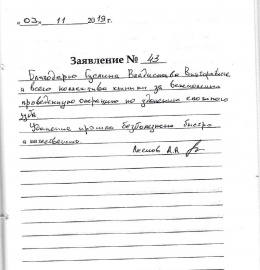 « 03 » 11 2019г.
Заявление № 43
Благодарю Владислава Викторовича
и всего коллектива клиники за
проведенную операцию по удалению сложного
зуба.
Удаление прошло безболезненно быстро
и качественно.
А.А.